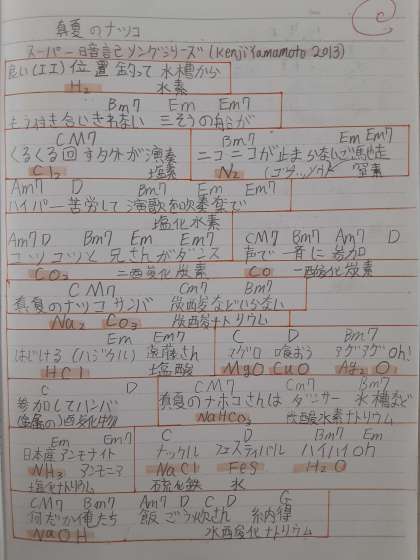 真夏のナツコ
スーパー暗記ソングシリーズ (Kenji Yamamoto 2013)
良い(エエ)位置 釣って 水槽から
H₂ 水素
Bm7 Em Em7
もう付き合いきれない 三そうの船が
CM7 Bm7 Em Em7
くるくる回す
ニコニコが止まらない
Cl₂ 塩素 N₂ 窒素
Am7 D Bm7 Em Em7
ハイパー苦労して 演歌を吹奏楽で
塩化水素
Am7 D Bm7 Em Em7 CM7 Bm7 Am7 D
コツコツと 兄さんがダンス 声で一音に参加
CO₂ 二酸化炭素 CO 一酸化炭素
CM7 Cm7 Bm7
真夏のナツコ サンバ
Na₂ CO₃ 炭酸ナトリウム
Em Em7 C D Bm7
はじける(ハジケル) 遠藤さん マグロ 喰おう アグアグ oh!
HCl 塩酸 MgO CuO Ag₂O
C D CM7 Cm7 Bm7
参加してハンバ 真夏のナホコさんは ダンサー 水槽など
NaHCO₃ 炭酸水素ナトリウム
Em Em7 C D Bm7 Em
日本産アンモナイト ナックル フェスティバル ハイハイ oh
NH₃ アンモニア NaCl FeS H₂O
塩化ナトリウム 硫化鉄 水
CM7 Bm7 Am7 D C D G
何だか俺たち 飯ごう炊さん 納得
NaOH 水酸化ナトリウム